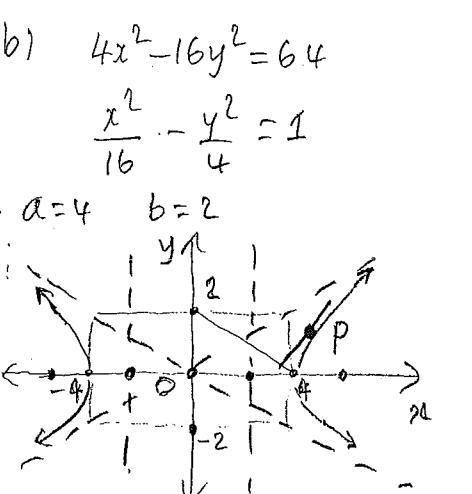 b) 4x²-16y²=64
x²/16 - y²/4 = 1
a=4 b=2
y
2
P
-4 O 4
x
-2